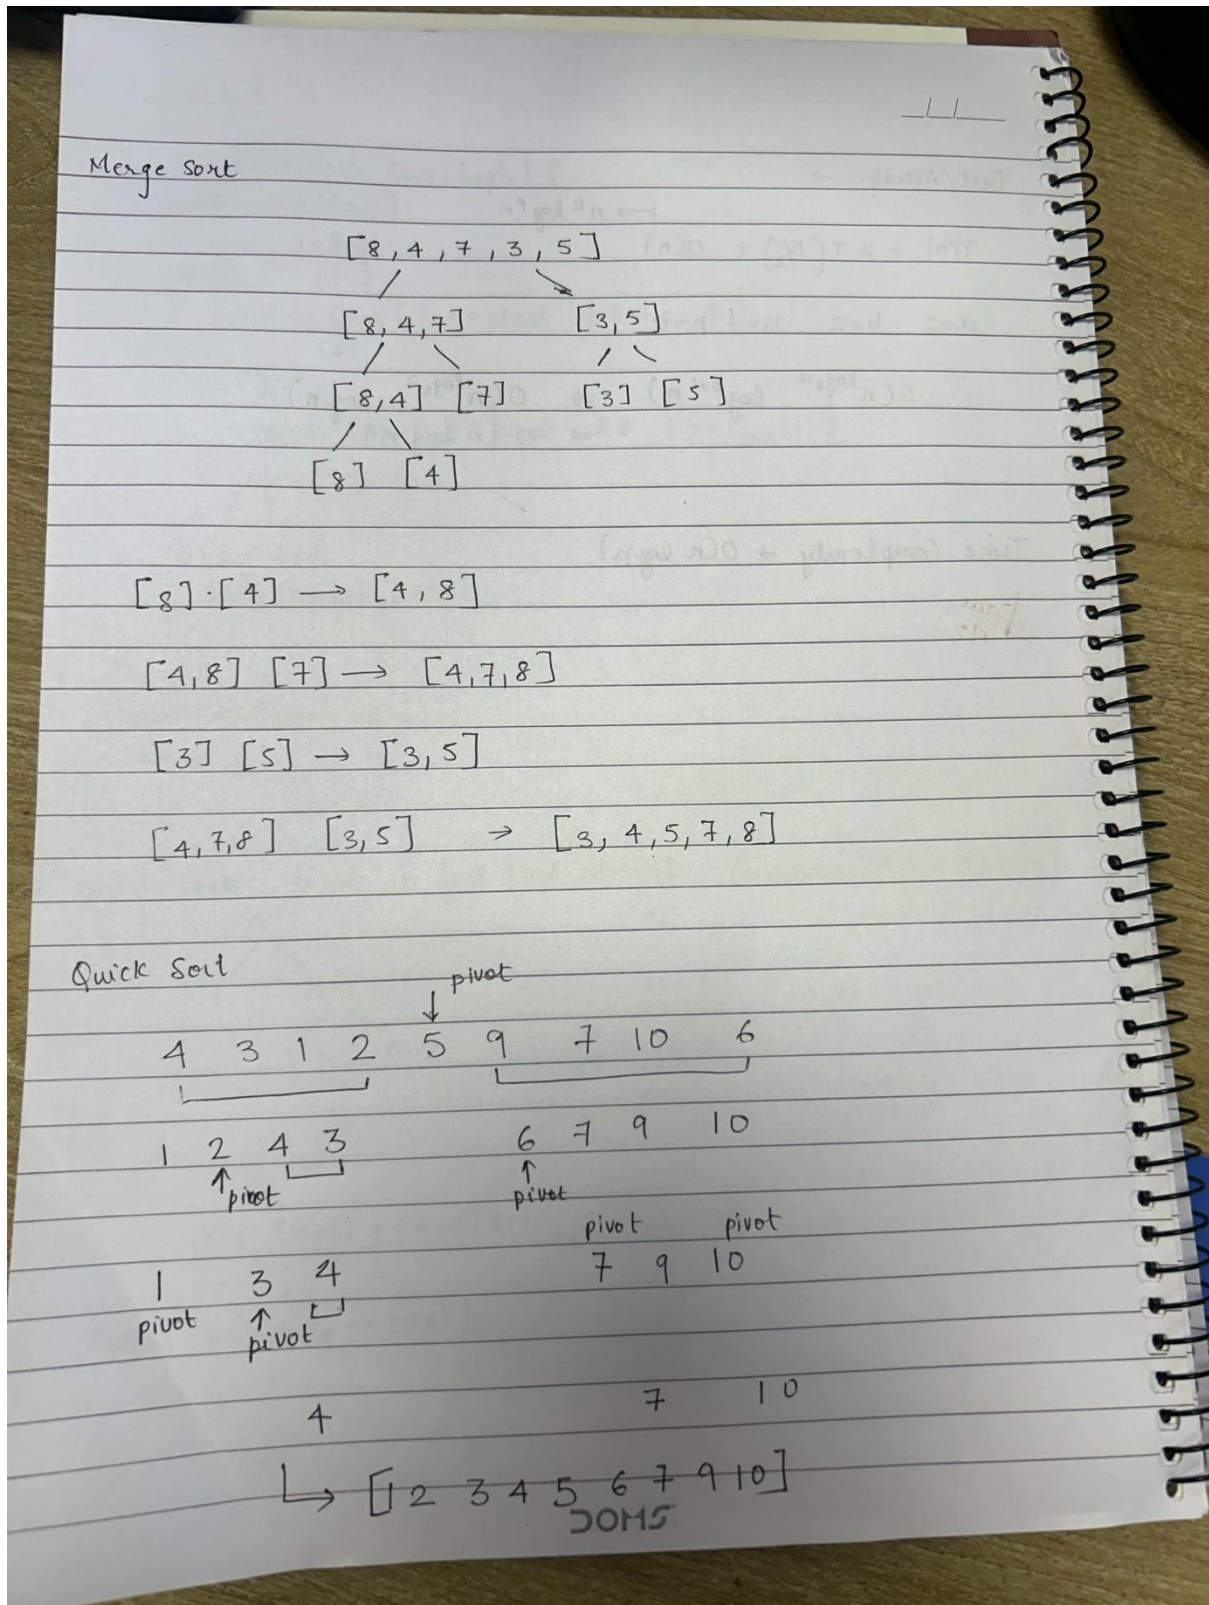 Merge Sort
[8, 4, 7, 3, 5]
[8, 4, 7] [3, 5]
[8, 4] [7] [3] [5]
[8] [4]
[8] · [4] → [4, 8]
[4, 8] [7] → [4, 7, 8]
[3] [5] → [3, 5]
[4, 7, 8] [3, 5] → [3, 4, 5, 7, 8]
Quick Sort
pivot
4 3 1 2 5 9 7 10 6
1 2 4 3 6 7 9 10
pivot pivot
pivot pivot
1 3 4 7 9 10
pivot pivot
4 7 10
[1 2 3 4 5 6 7 9 10]
DOMS